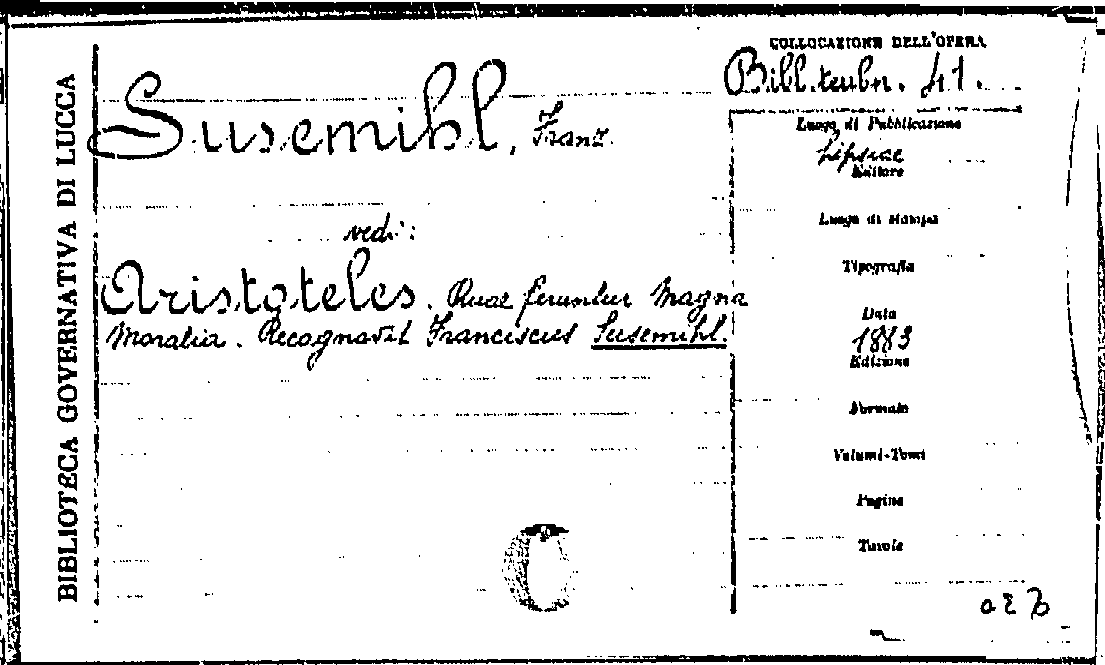 BIBLIOTECA GOVERNATIVA DI LUCCA
COLLOCAZIONE DELL'OPERA
Bibl. teubn. 41.
Susemihl, Franz.
vedi:
Aristoteles. Quae feruntur Magna
Moralia. Recognovit Franciscus Susemihl.
Luogo di Pubblicazione
Lipsiae
Editore
Luogo di stampa
Tipografia
Data
1883
Edizione
Formato
Volumi-Tomi
Pagine
Tavole